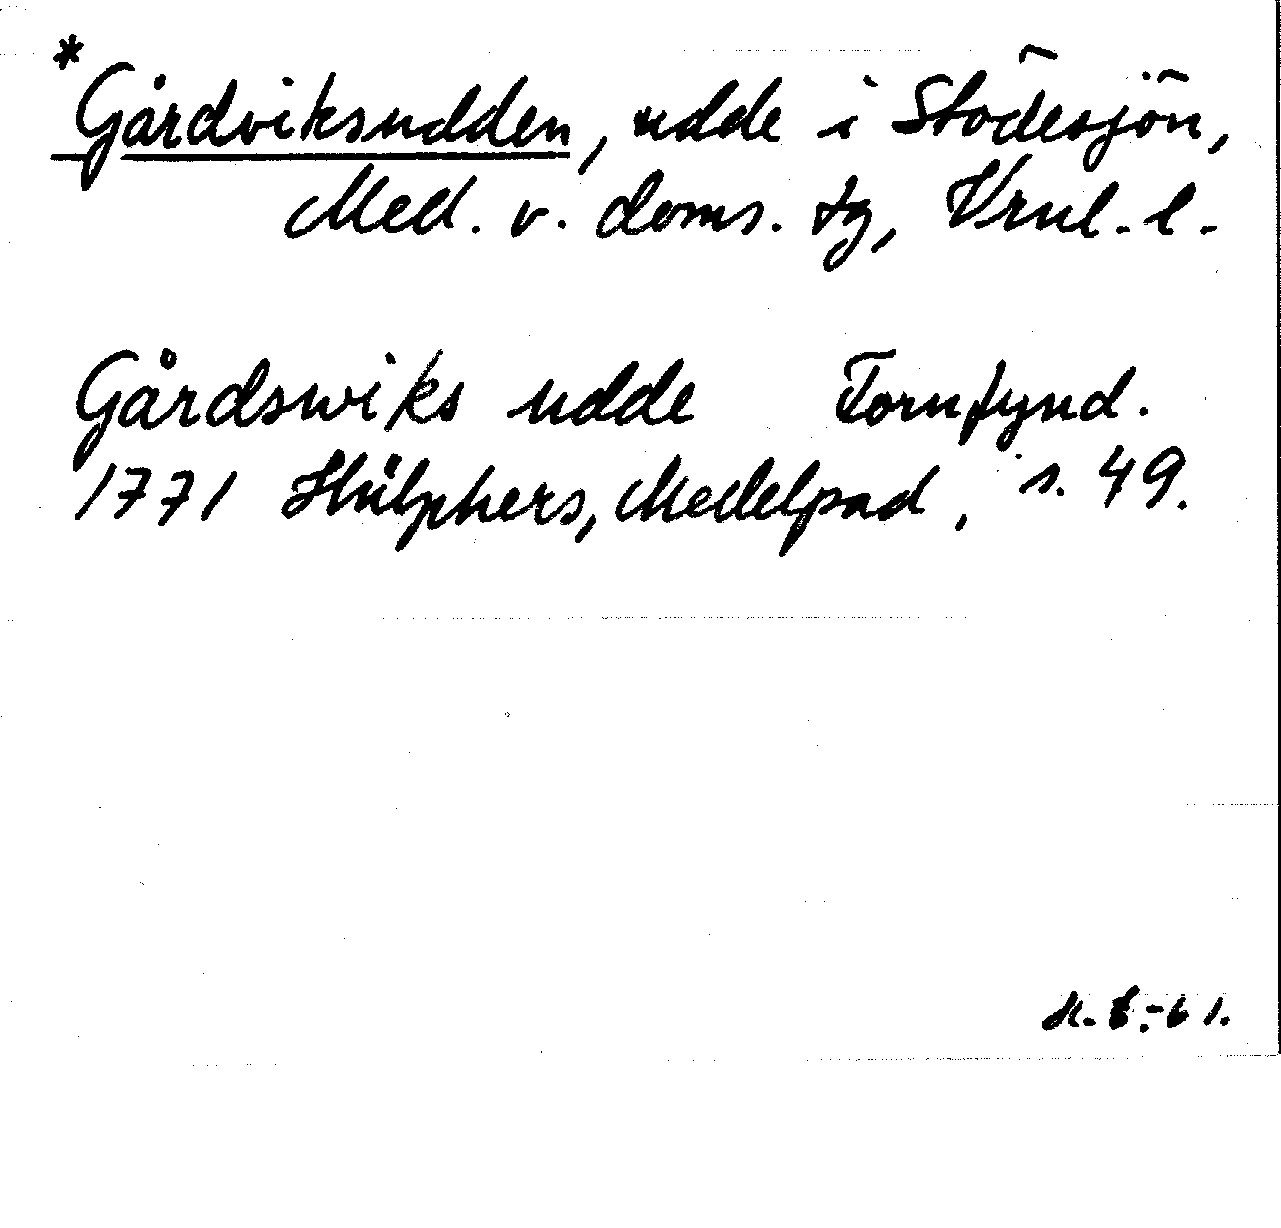 *Gårdviksudden, udde i Stödesjön,
Med. v. doms. tg, Vrnl. l.
Gårdswiks udde Fornfynd.
1771 Hülphers, Medelpad, s. 49.
-61.